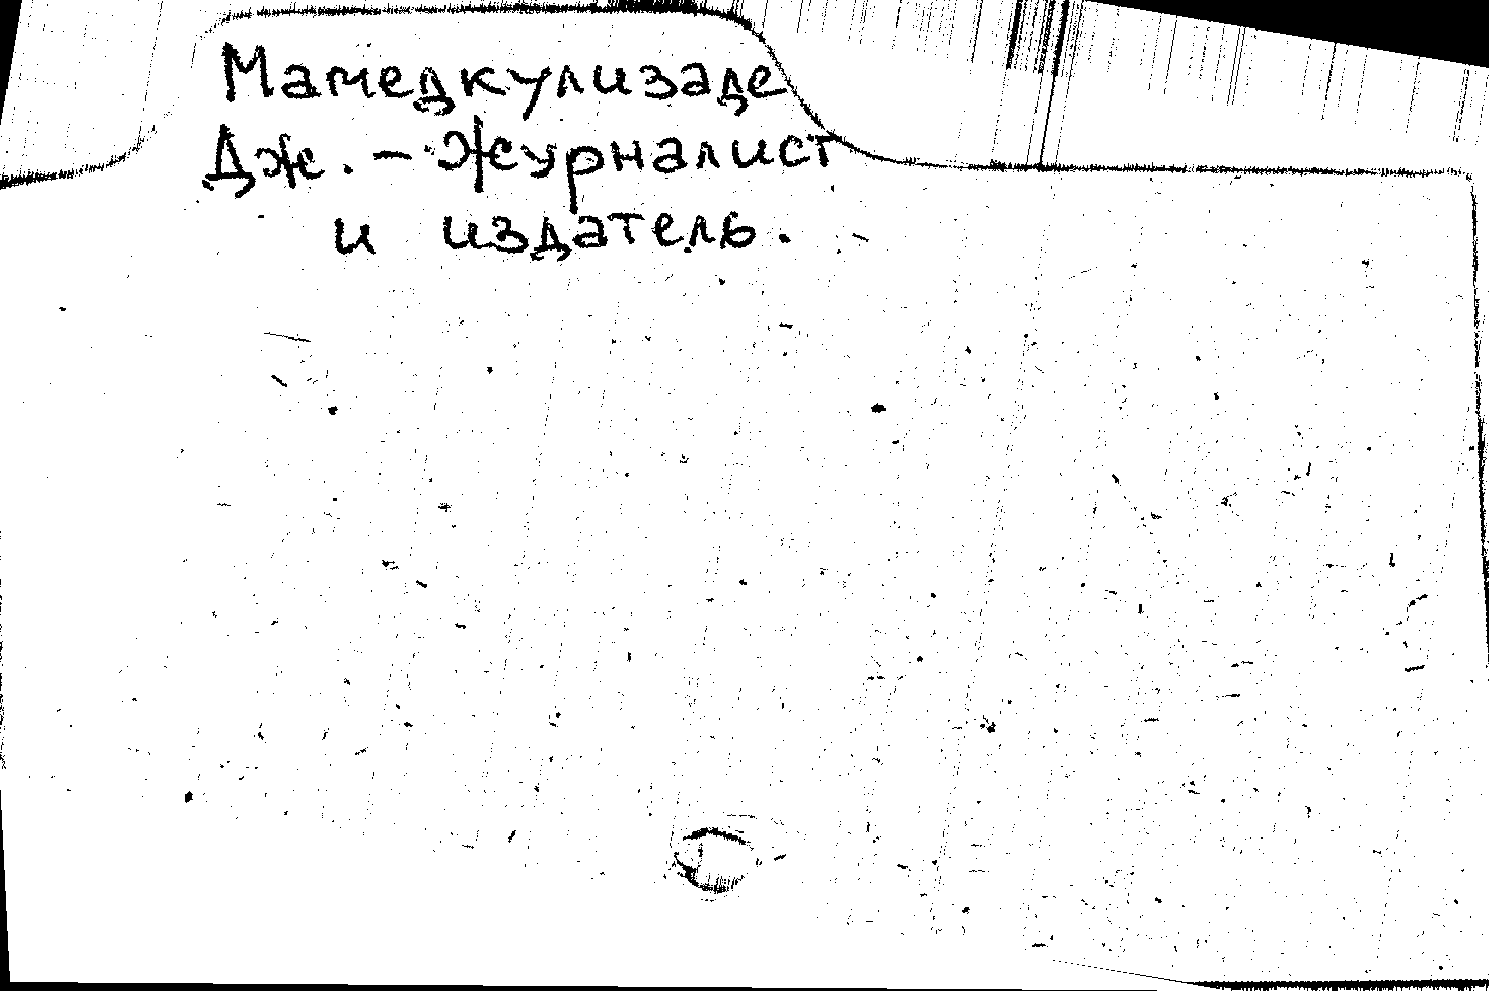 Мамедкулизаде
Дж. - журналист
и издатель.